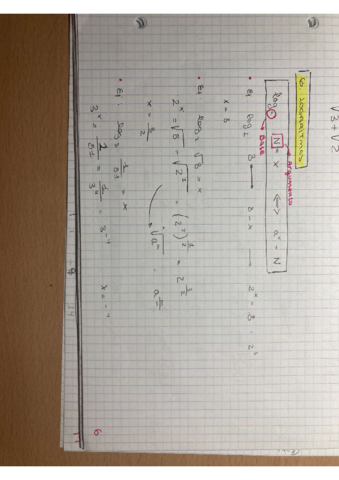 √3+√2
6. LOGARITMOS
Argumento
logₐ N = x <-> aˣ = N
Base
• Ej log₂ 8 8 = x 2ˣ = 8 2³
x = 3
• Ej log₂ √8 = x
2ˣ = √8 = √2³ = (2³)^½ = 2^3/2
x = 3/2 ⁿ√aᵐ = a^m/n
• Ej. log₃ 1/81 = x
3ˣ = 1/81 = 1/3⁴ = 3⁻⁴ x = -4
6